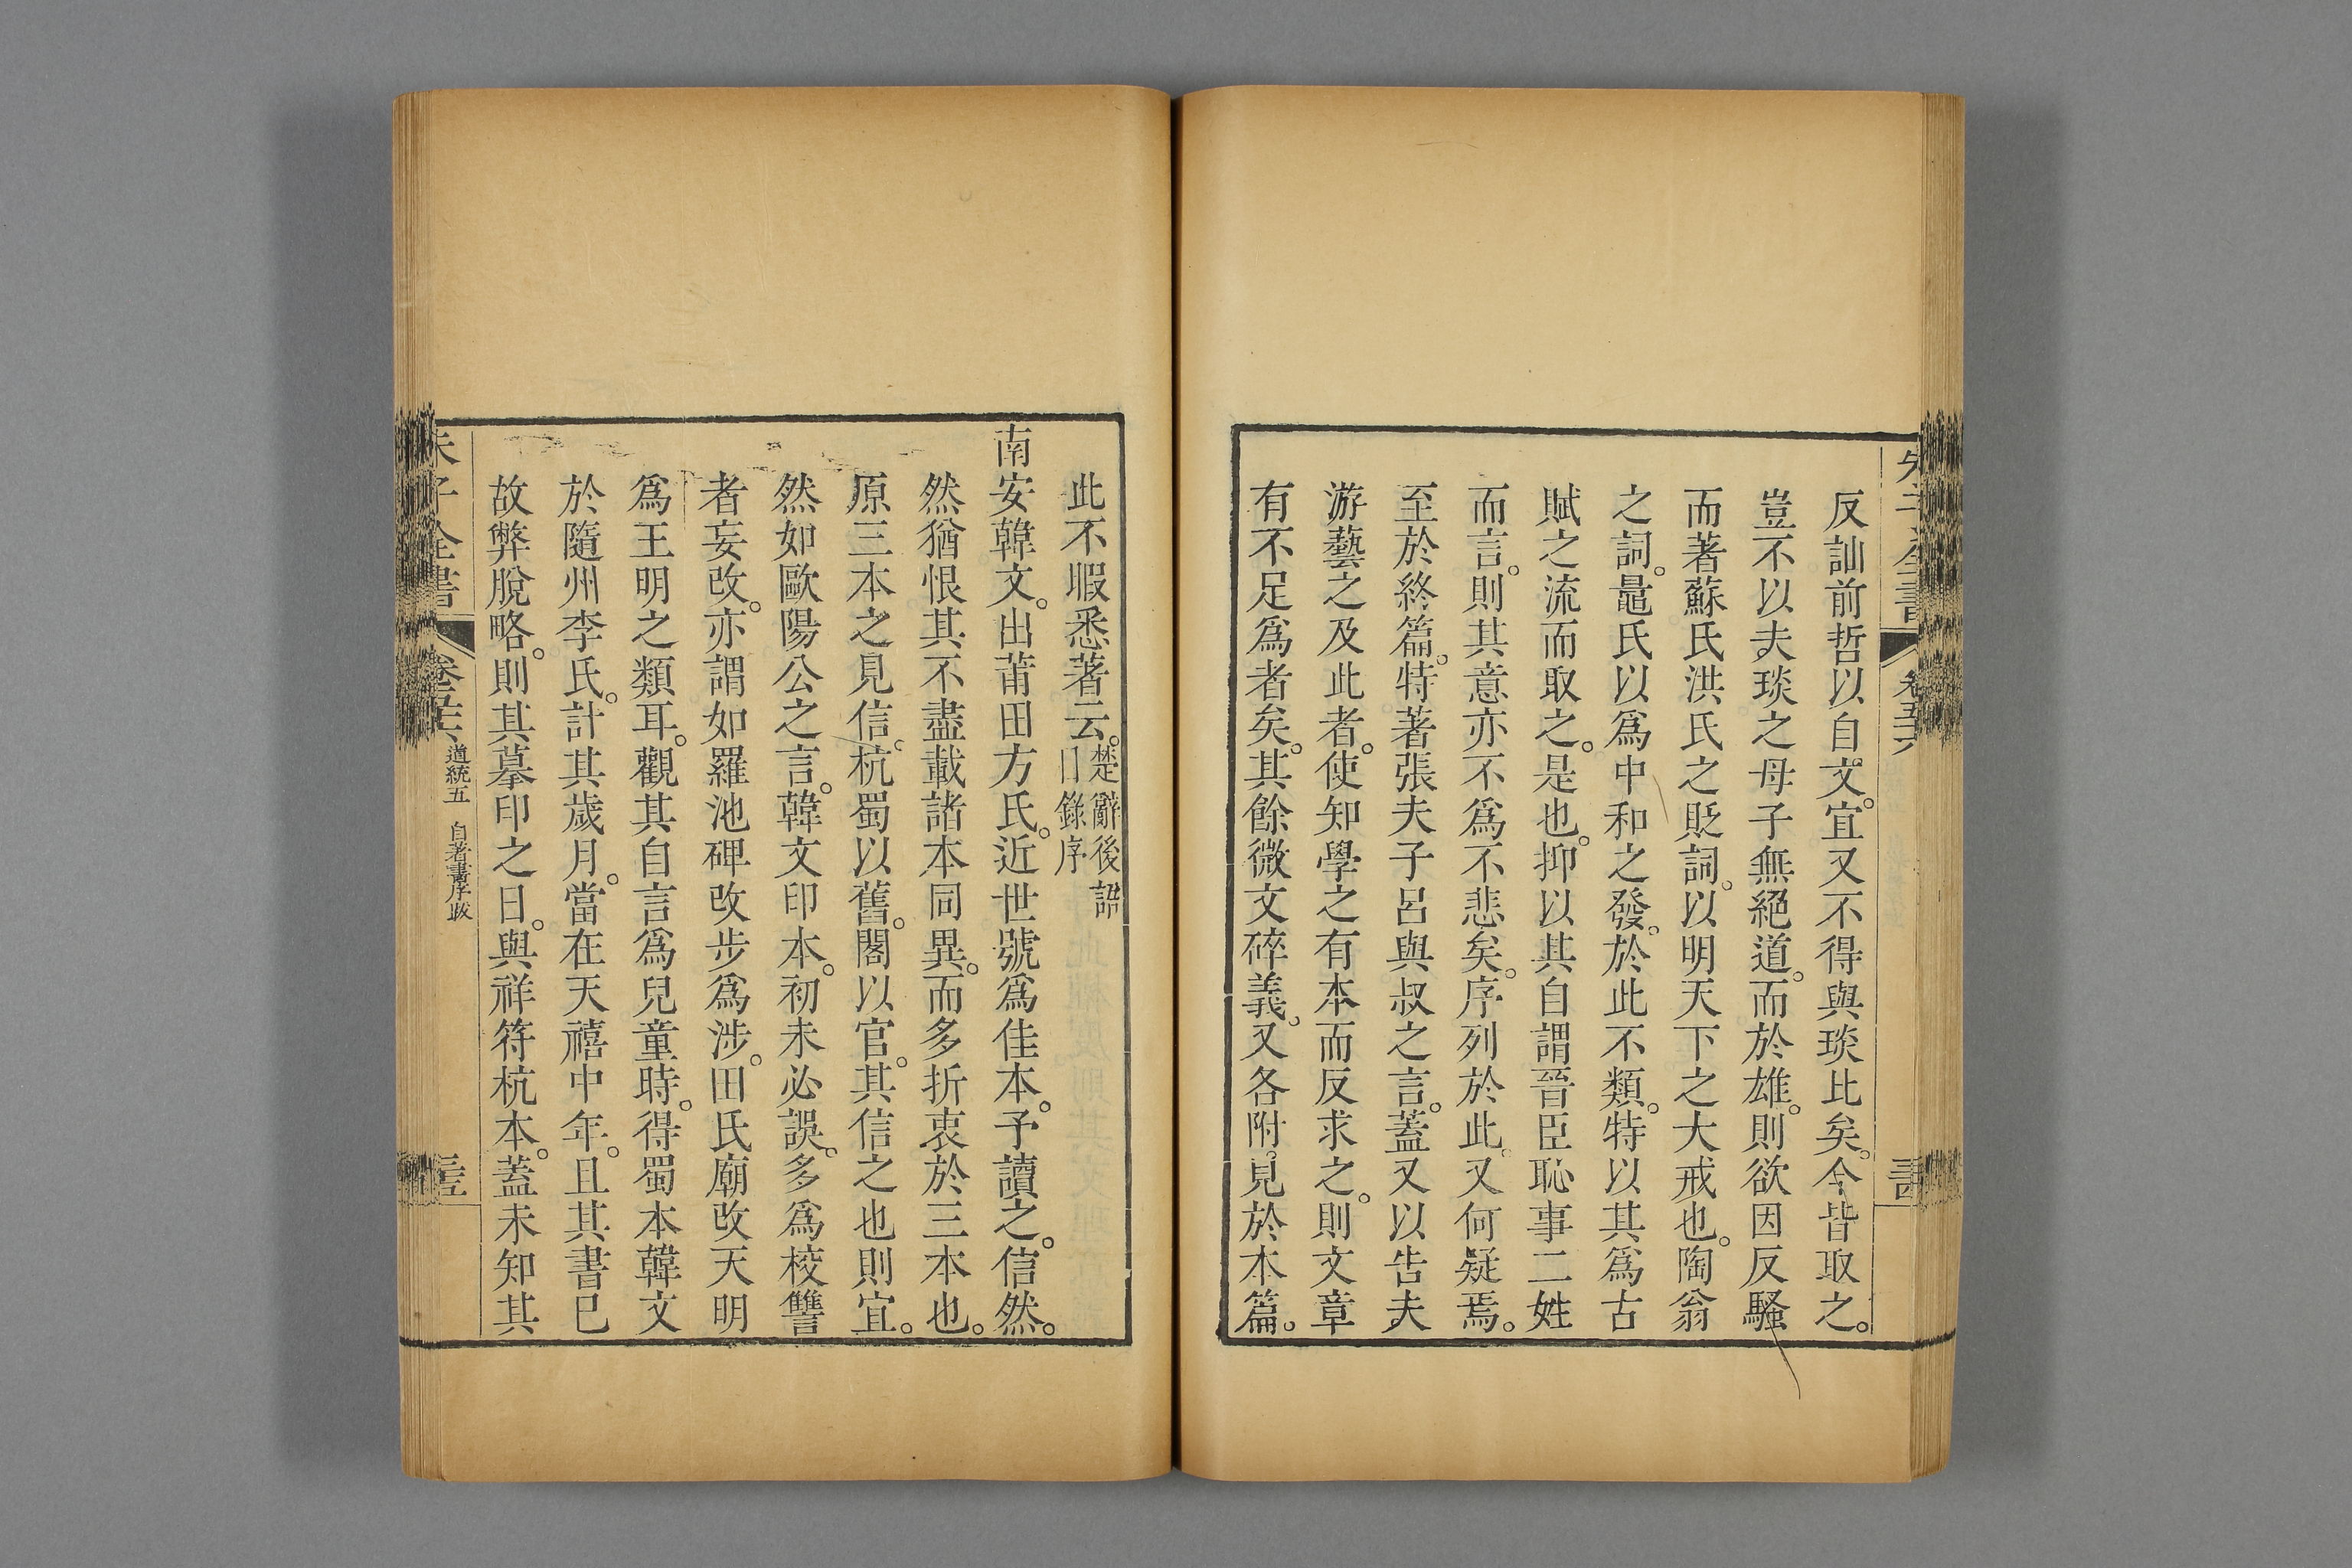 反訕前哲以自文。宜又不得與琰比矣。今皆取之。
豈不以夫琰之母子無絕道。而於雄。則欲因反騷
而著蘇氏洪氏之貶詞。以明天下之大戒也。陶翁
之詞。鼂氏以爲中和之發。於此不類。特以其爲古
賦之流而取之。是也。抑以其自謂晉臣恥事二姓
而言。則其意亦不爲不悲矣。序列於此。又何疑焉。
至於終篇。特著張夫子呂與叔之言。蓋又以告夫
游藝之及此者。使知學之有本而反求之。則文章
有不足爲者矣。其餘微文碎義。又各附見於本篇。
此不暇悉著云。楚辭後語
目錄序
南安韓文。出莆田方氏。近世號爲佳本。予讀之。信然。
然猶恨其不盡載諸本同異。而多折衷於三本也。
原三本之見信。杭蜀以舊。閣以官。其信之也則宜。
然如歐陽公之言。韓文印本。初未必誤。多爲校讐
者妄改。亦謂如羅池碑改步爲涉。田氏廟改天明
爲王明之類耳。觀其自言爲兒童時。得蜀本韓文
於隨州李氏。計其歲月。當在天禧中年。且其書已
故弊脫略。則其摹印之日。與祥符杭本。蓋未知其
朱子全書
道統五 自著書序跋